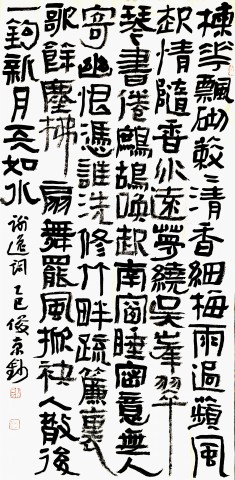 楝花飄砌蔌〻清香細梅雨過蘋風
起情隨香水遠夢繞吴峯翠
琴書倦鷓鴣喚起南窗睡密意無人
寄幽恨憑誰洗修竹畔疏簾裏
歌餘塵拂扇舞罷風掀袂人散後
一鉤新月天如水 謝逸詞 乙巳俊京鈔